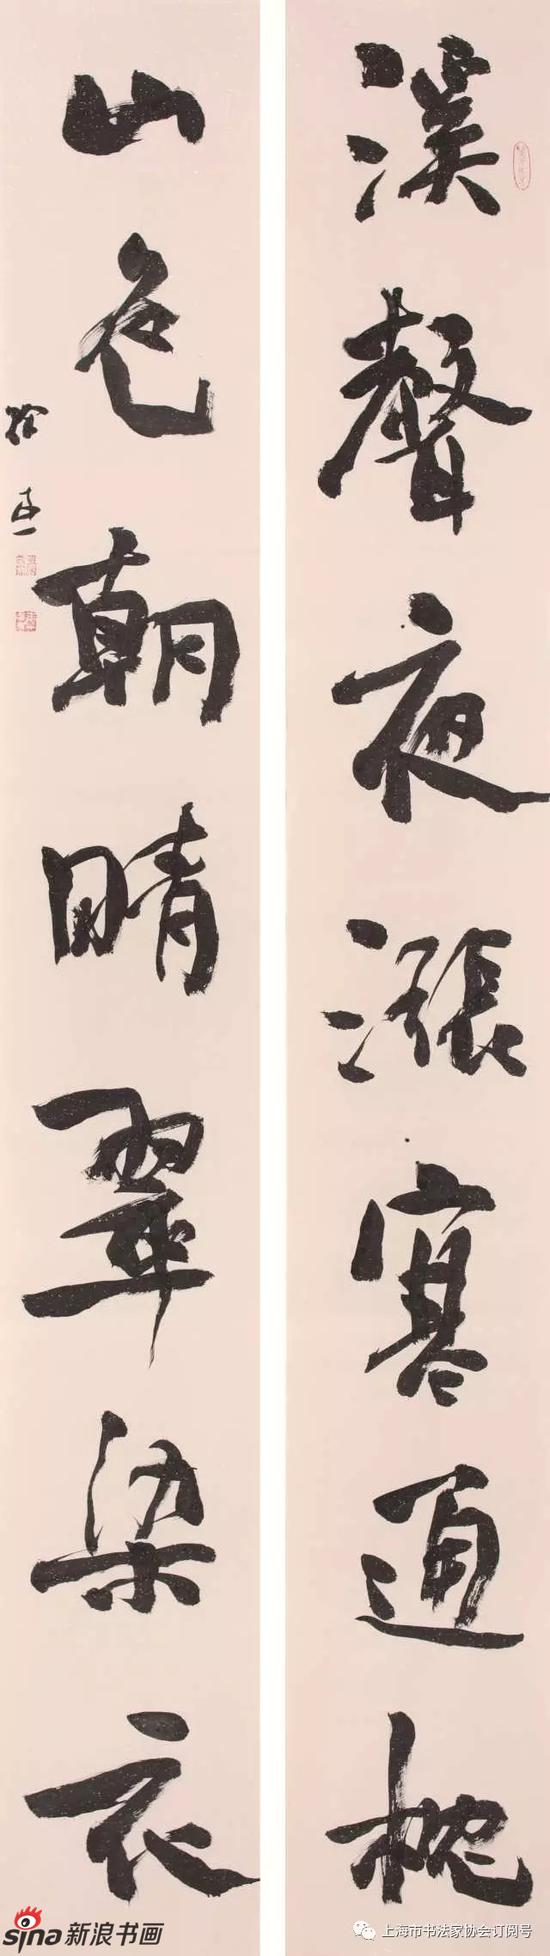 溪聲夜漲寒通枕
山色朝晴翠染衣
sina 新浪书画
上海市书法家协会订阅号